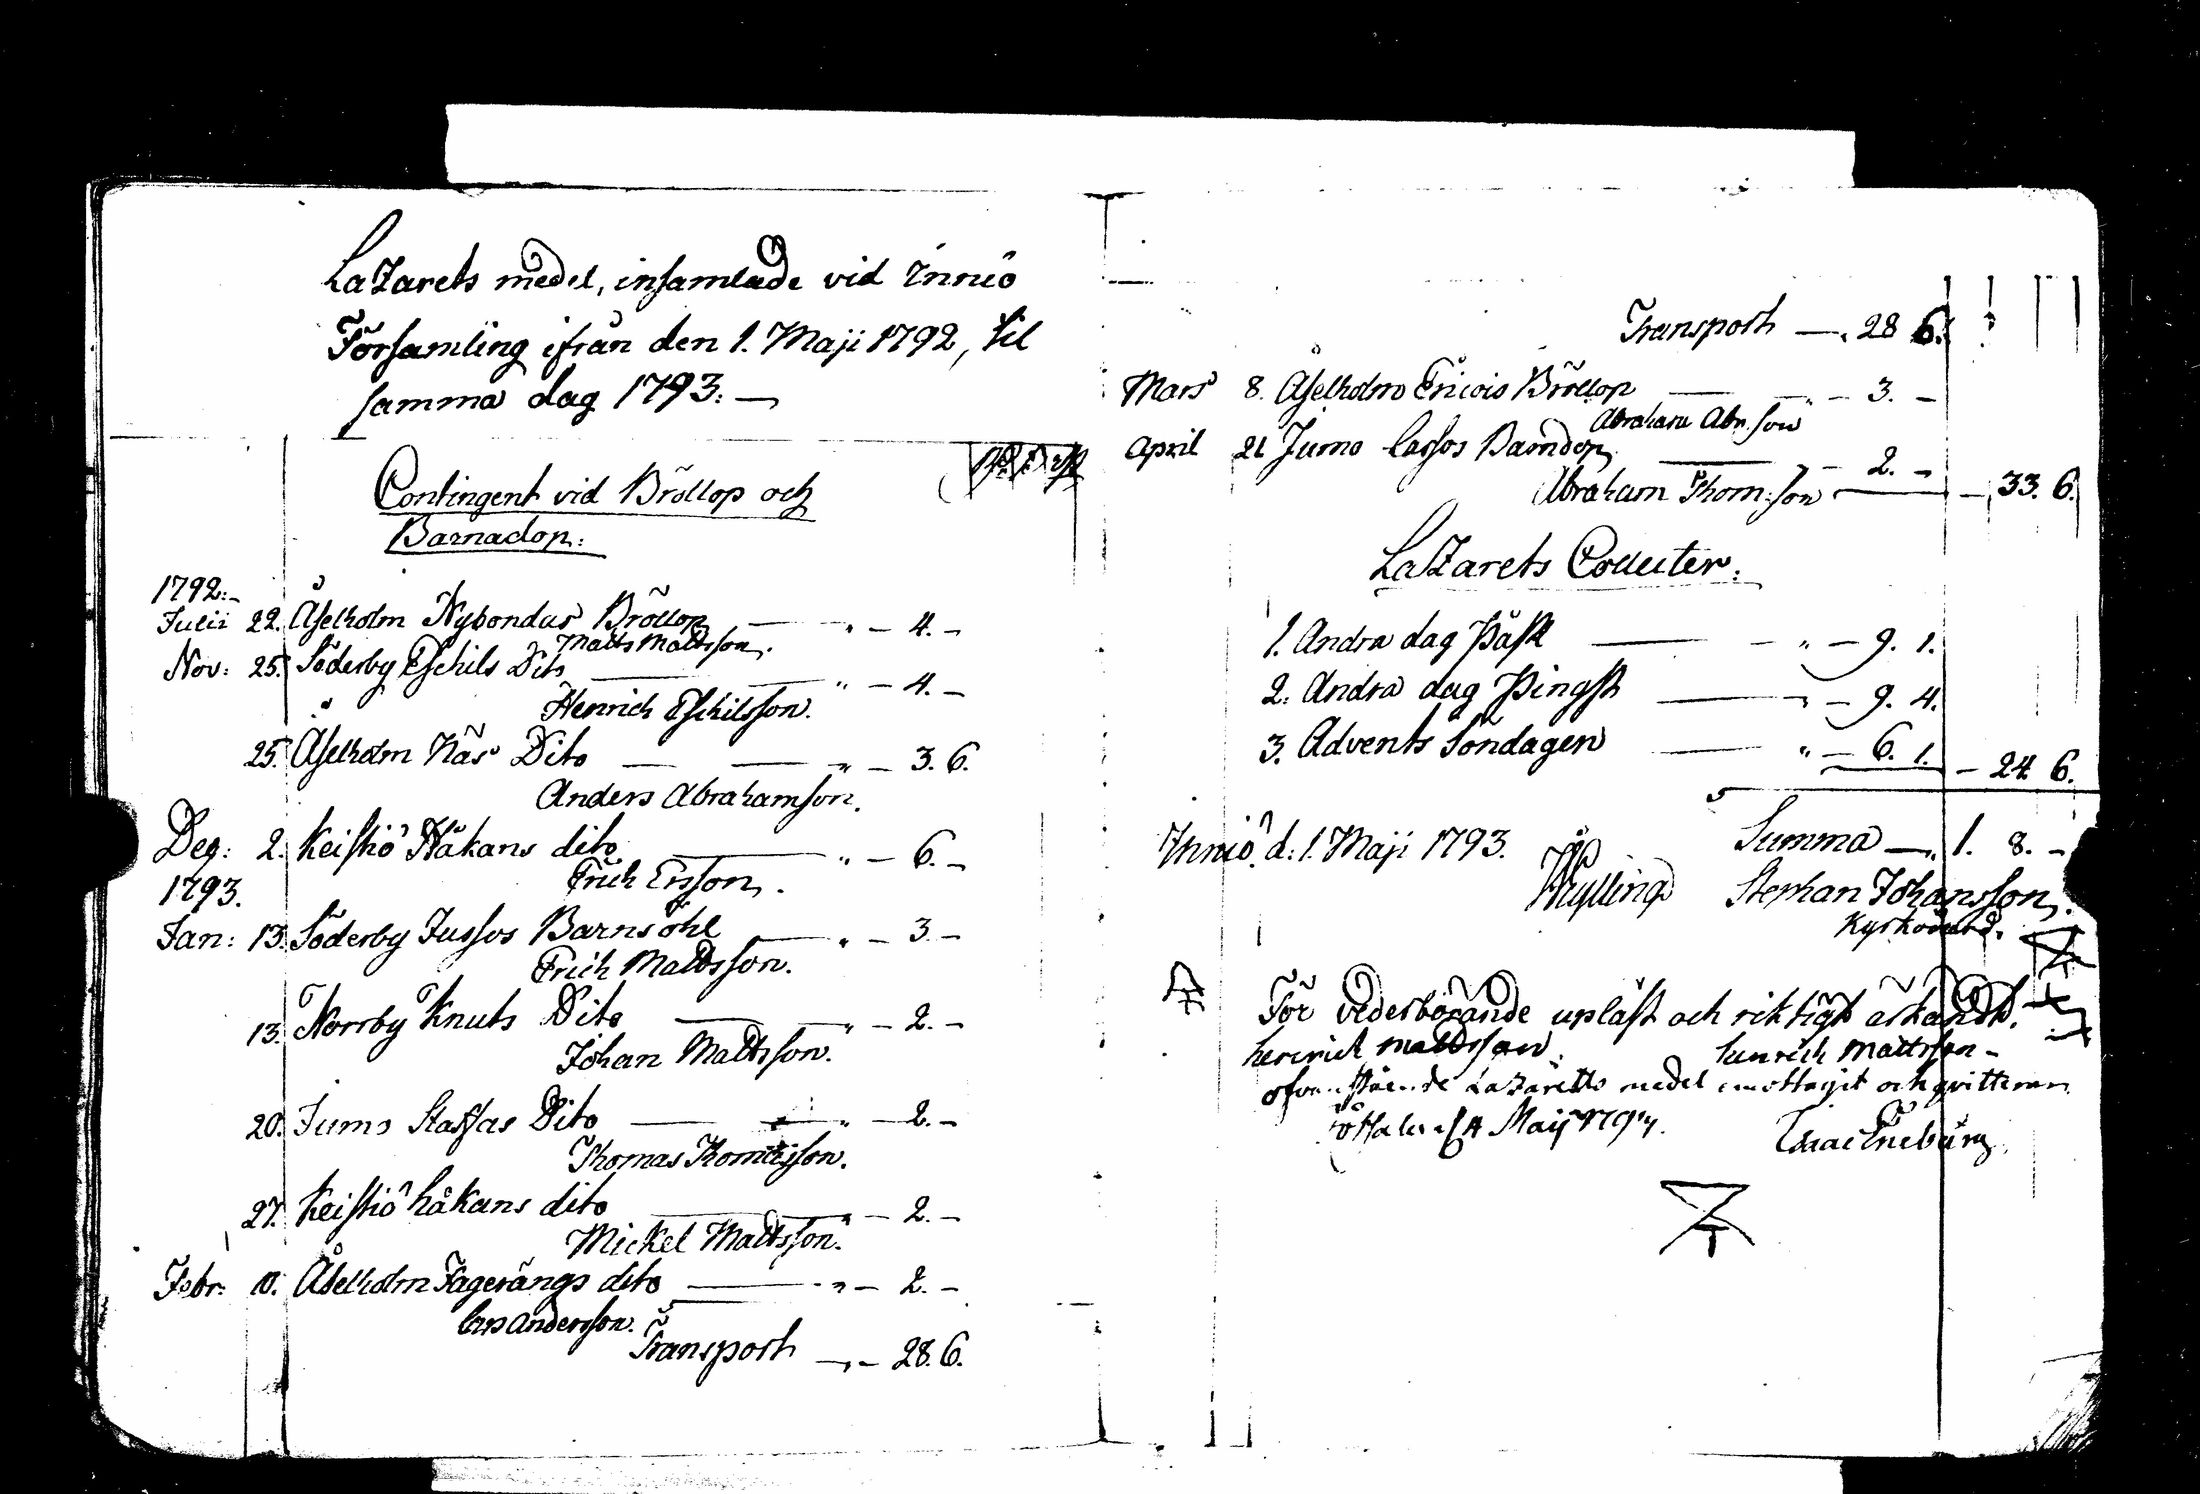 Lazarets medel, insamlade vid Inniö
Församling ifrån den 1. Maji 1792, til
samma dag 1793. —
Contingent vid Bröllop och
Barnadop:
1792:-
Julii 22. Åselholm Nybondas Bröllop — " — 4. —
Matts Mattsson.
Nov: 25. Söderby Eschils Dito — " — 4. —
Henrich Eschilsson.
25. Åselholm Näs Dito — " — 3. 6.
Anders Abrahamson.
Dec: 2. Keistiö Håkans dito — " — 6. —
Erich Ersson.
1793.
Jan: 13. Söderby Jussos Barnsöhl — " — 3 —
Erich Mattsson.
13. Norrby Knuts Dito — " — 2. —
Johan Mattsson.
20. Jumo Staffas Dito — " — 2. —
Thomas Thomasson.
27. Keistiö håkans dito — " — 2. —
Mickel Mattsson.
Febr: 10. Åselholm Fagerängs dito — " — 2. —
Lars Andersson.
Transport — " — 28. 6.
Transport — " 28 6.
Mars 8. Åselholm Ericois Bröllop — " — 3. —
Abraham Abr.son
April 21 Jumo Lassos Barndop — " — 2. —
Abraham Thom:son — 33. 6.
Lazarets Collecter.
1. Andra dag Påsk — " — 9. 1.
2. Andra dag Pingst — " — 9. 4.
3. Advents Söndagen — " — 6. 1. — 24 6.
Summa — " 1. 8. —
Inniö d. 1. Maji 1793.
Stephan Johansson.
Kyrkovärd.
För vederbörande upläst och riktigt ärkändt.
henrich mattsson. henrich mattsson -
ofvanstående Lazaretts medel emottagit och qvitteras
Maij